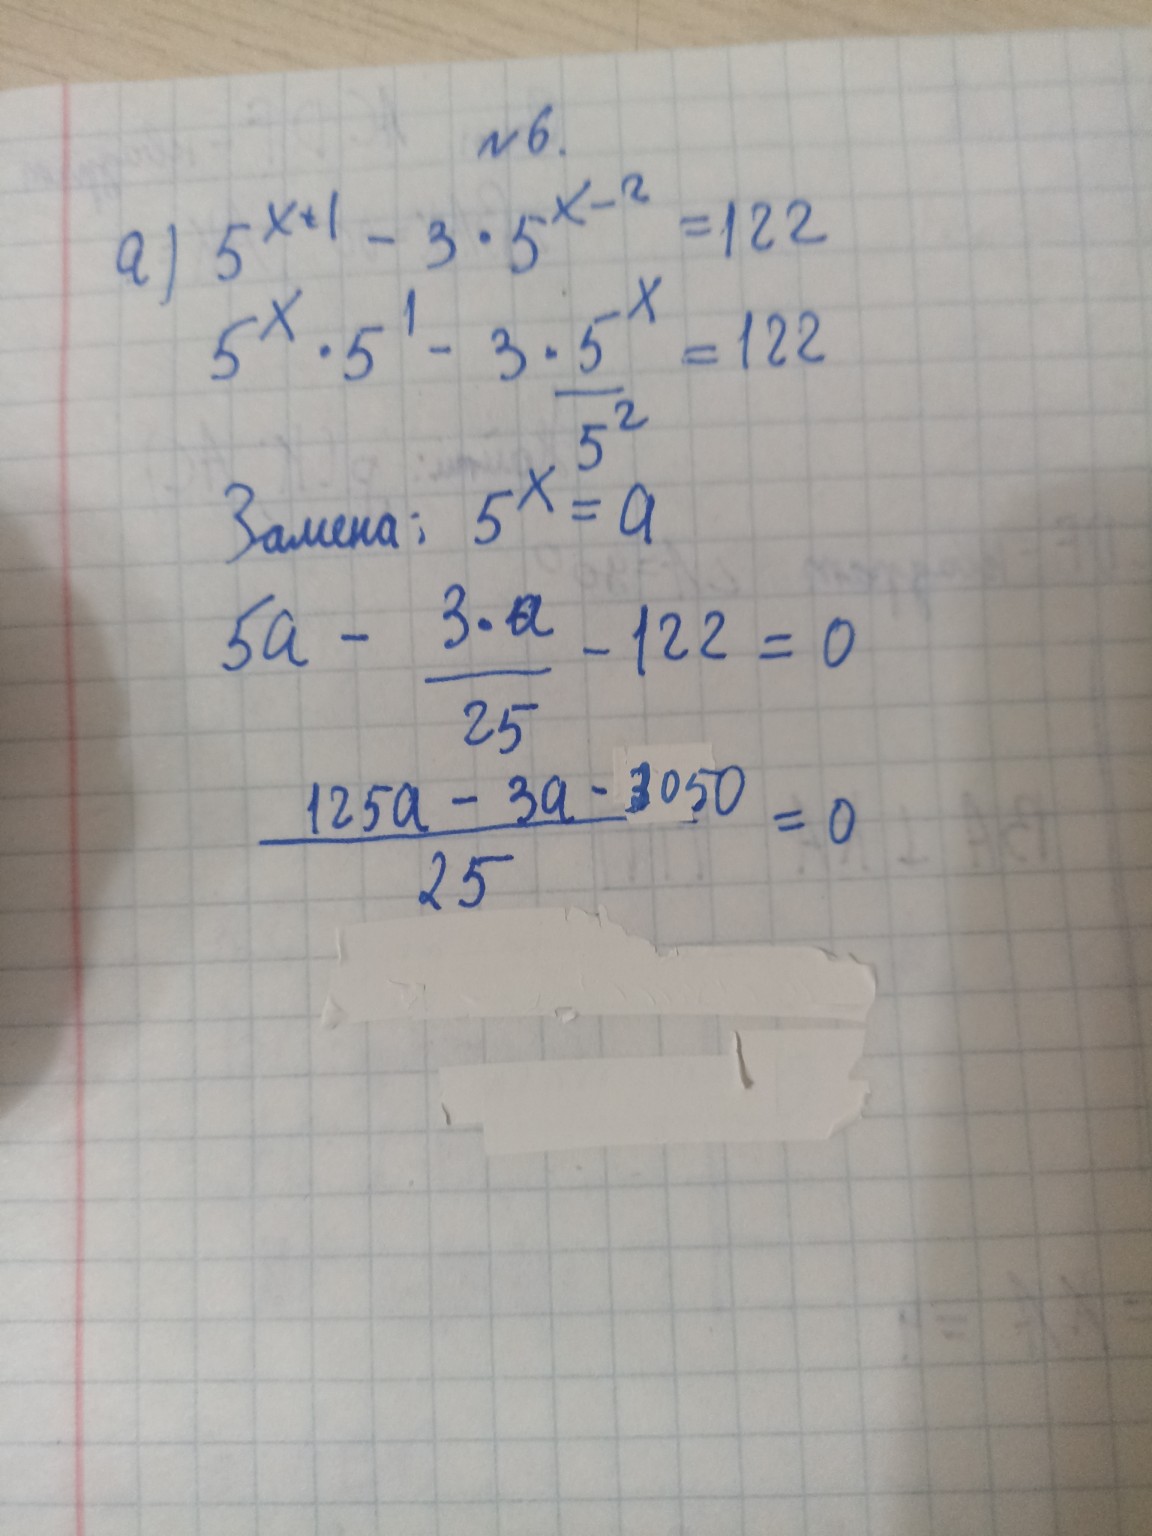 №6.
а) 5^{x+1} - 3·5^{x-2} = 122
5^x · 5^1 - 3 · 5^x / 5^2 = 122
Замена: 5^x = a
5a - 3·a / 25 - 122 = 0
125a - 3a - 3050 / 25 = 0